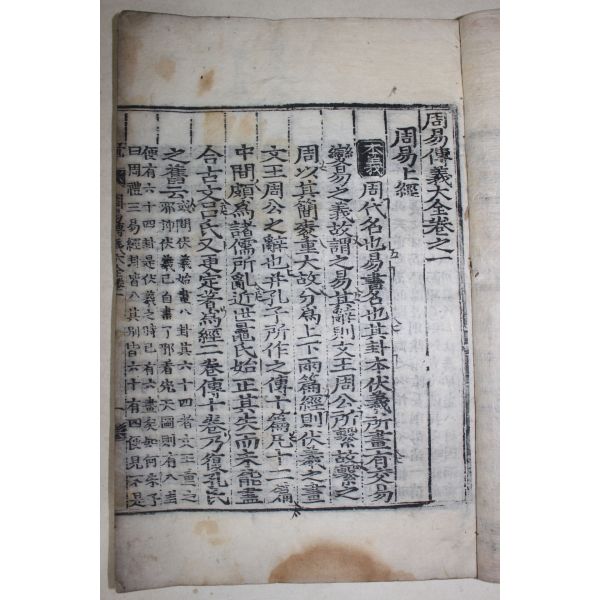 周易傳義大全卷之一
周易上經
本義 周代名也易書名也其卦本伏羲所畫有交易
變易之義故謂之易其辭則文王周公所繫故繫之
周以其簡袠重大故分爲上下兩篇經則伏羲之畫
文王周公之辭也幷孔子所作之傳十篇凡十二篇
中間頗爲諸儒所亂近世晁氏始正其失而未能盡
合古文呂氏又更定著爲經二卷傳十卷乃復孔氏
之舊云
問伏羲始畫八卦其六十四者文王重之
邪抑伏羲已自畫了邪看先天圖則有八卦
便有六十四卦是伏羲之時已有六畫矣如何朱子
曰周禮三易經卦皆八其別皆六十有四便見不是